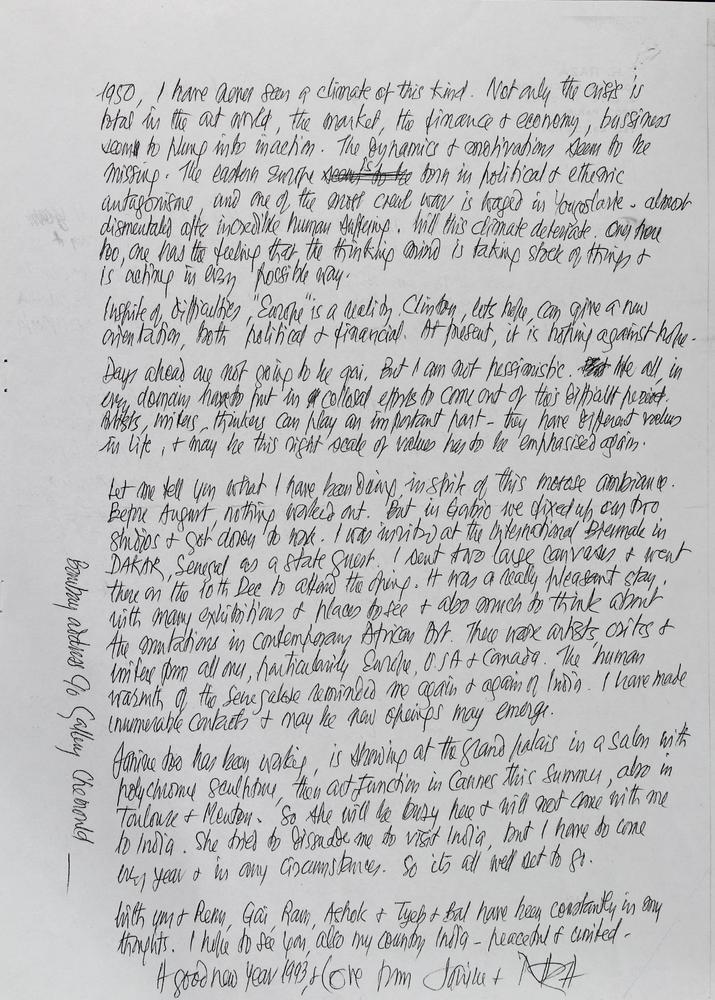 1950, I have never seen a climate of this kind. Not only the crisis is
total in the art world, the market, the finance & economy, bussiness
seems to plung into inaction. The dynamics & motivations seem to be
missing. The eastern Europe is torn in political & ethenic
antagonisme, and one of the most cruel war is waged in Yougoslavie - almost
dismentaled after incredible human suffering. Will this climate deteriate. Over here
too, one has the feeling that the thinking mind is taking stock of things &
is acting in every possible way.
Inspite of difficulties, "Europe" is a reality. Clinton, lets hope, can give a new
orientation, both political & financial. At present, it is hoping against hope.
Days ahead are not going to be gai. But I am not pessionistic. We all, in
every domain have to put in colossal efforts to come out of this difficult period.
Artists, writers, thinkers can play an important part - they have different values
in life, & may be this right scale of values has to be emphasised again.
Let me tell you what I have been doing, inspite of this morose ambiance.
Before August, nothing worked out. But in Gorbio we fixed up our two
studios & got down to work. I was invited at the International Biennale in
DAKAR, Senegal as a state guest. I sent two large canvases & went
there on the 10th Dec to attend the opening. It was a really pleasant stay,
with many exhibitions & places to see & also much to think about
the mutations in contemporary African Art. There were artists, critics &
writers from all over, particularily Europe, USA & Canada. The human
warmth of the Senegalese reminded me again & again of India. I have made
innumerable contacts & may be new openings may emerge.
Janine too has been working, is showing at the grand palais in a salon with
polychrome sculpture, then art function in Cannes this summer, also in
Toulouse & Menton. So she will be busy here & will not come with me
to India. She tried to dissuade me to visit India, but I have to come
every year & in any circumstances. So its all well set to go.
Both you & Renu, Gai, Ram, Ashok & Tyeb & Bal have been constantly in my
thoughts. I hope to see you, also my country India - peaceful & united -
A good new year 1993, & Love from Janine & RAZA
Bombay address c/o Gallery Chemould